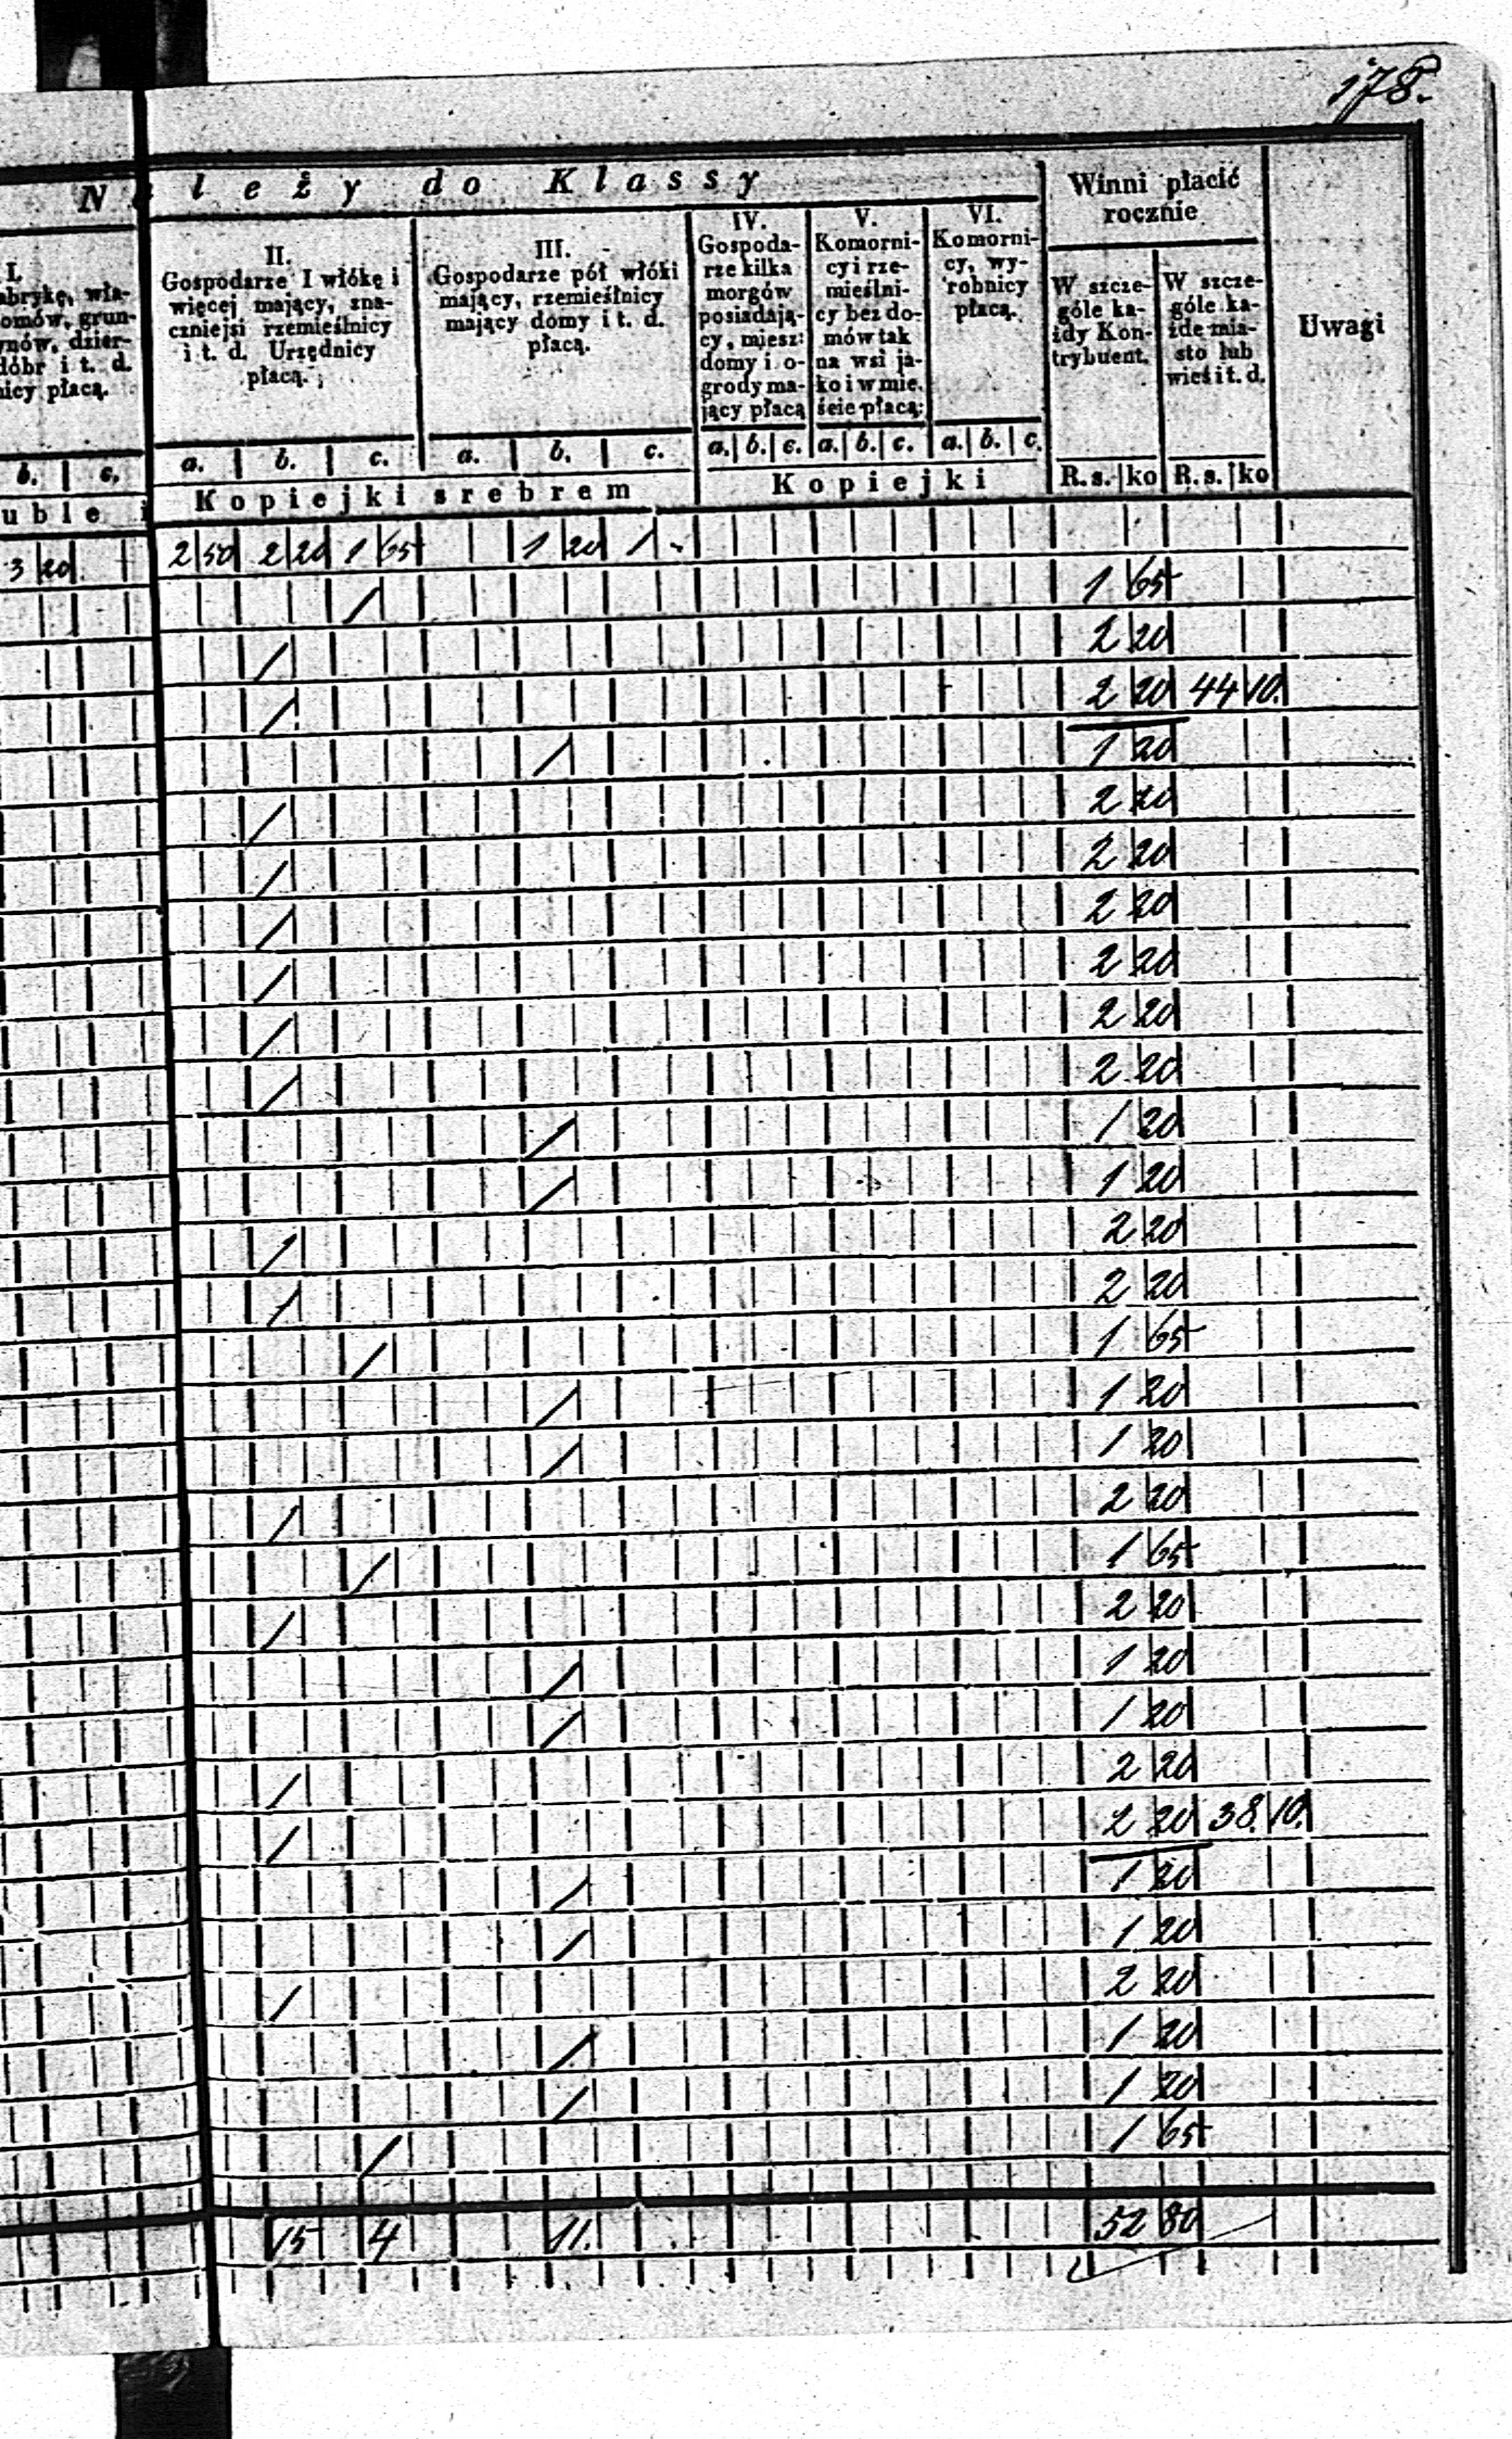 178.
Należy do Klassy
Winni płacić
rocznie
Uwagi
I.
abrykę, wła-
omów, grun-
ynów, dzier-
dóbr i t. d.
nicy płacą.
II.
Gospodarze I włókę i
więcej mający, zna-
czniejsi rzemieślnicy
i t. d. Urzędnicy
płacą.
III.
Gospodarze pół włóki
mający, rzemieślnicy
mający domy i t. d.
płacą.
IV.
Gospoda-
rze kilka
morgów
posiadają-
cy, miesz:
domy i o-
grody ma-
jący płacą
V.
Komorni-
cy i rze-
mieślni-
cy bez do-
mów tak
na wsi ja-
ko i w mie.
ście płacą:
VI.
Komorni-
cy, wy-
robnicy
płacą.
W szcze-
góle ka-
żdy Kon-
trybuent.
W szcze-
góle ka-
żde mia-
sto lub
wieś i t. d.
b. c. a. b. c. a. b. c. a. b. c. a. b. c. a. b. c. R. s. ko R. s. ko
uble i Kopiejki srebrem Kopiejki
3 20 2 50 2 20 1 65 1 20 1 -
/ 1 65
/ 2 20
/ 2 20 44 10.
/ 1 20
/ 2 20
/ 2 20
/ 2 20
/ 2 20
/ 2 20
/ 2 20
/ 1 20
/ 1 20
/ 2 20
/ 2 20
/ 1 65
/ 1 20
/ 1 20
/ 2 20
/ 1 65
/ 2 20
/ 1 20
/ 1 20
/ 2 20
/ 2 20 38. 10.
/ 1 20
/ 1 20
/ 2 20
/ 1 20
/ 1 20
/ 1 65
15 4 11. 52 80